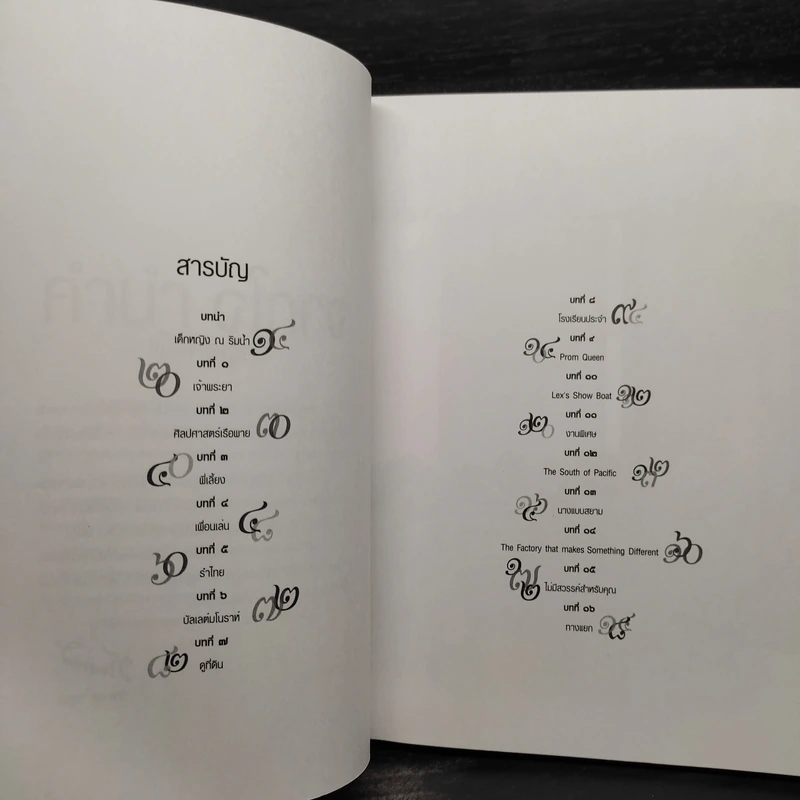 สารบัญ
บทนำ
เด็กหญิง ณ ริมน้ำ ๑๔
บทที่ ๑
๒๐ เจ้าพระยา
บทที่ ๒
ศิลปศาสตร์เรือพาย ๓๐
บทที่ ๓
๔๐ พี่เลี้ยง
บทที่ ๔
เพื่อนเล่น ๔๘
บทที่ ๕
๖๐ รำไทย
บทที่ ๖
บัลเลต์มโนราห์ ๗๒
บทที่ ๗
๘๒ ดูที่ดิน
บทที่ ๘
โรงเรียนประจำ ๙๔
บทที่ ๙
๑๐๔ Prom Queen
บทที่ ๑๐
Lex's Show Boat ๑๑๒
บทที่ ๑๑
๑๒๐ งานพิเศษ
บทที่ ๑๒
The South of Pacific
บทที่ ๑๓
นางแบบสยาม
บทที่ ๑๔
The Factory that makes Something Different ๑๖๐
บทที่ ๑๕
๑๗๒ ไม่มีสวรรค์สำหรับคุณ
บทที่ ๑๖
ทางแยก